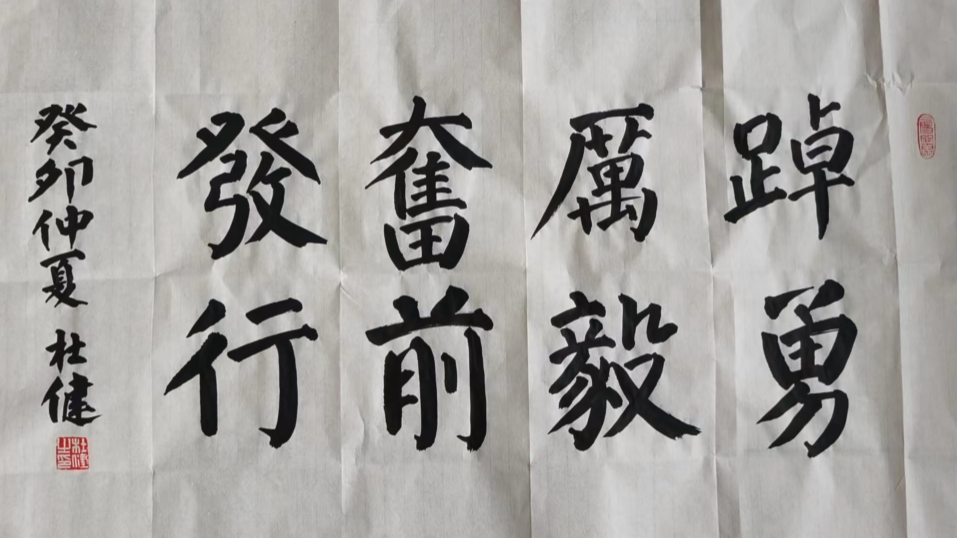 踔勇
厲毅
奮前
發行
癸卯仲夏 杜健